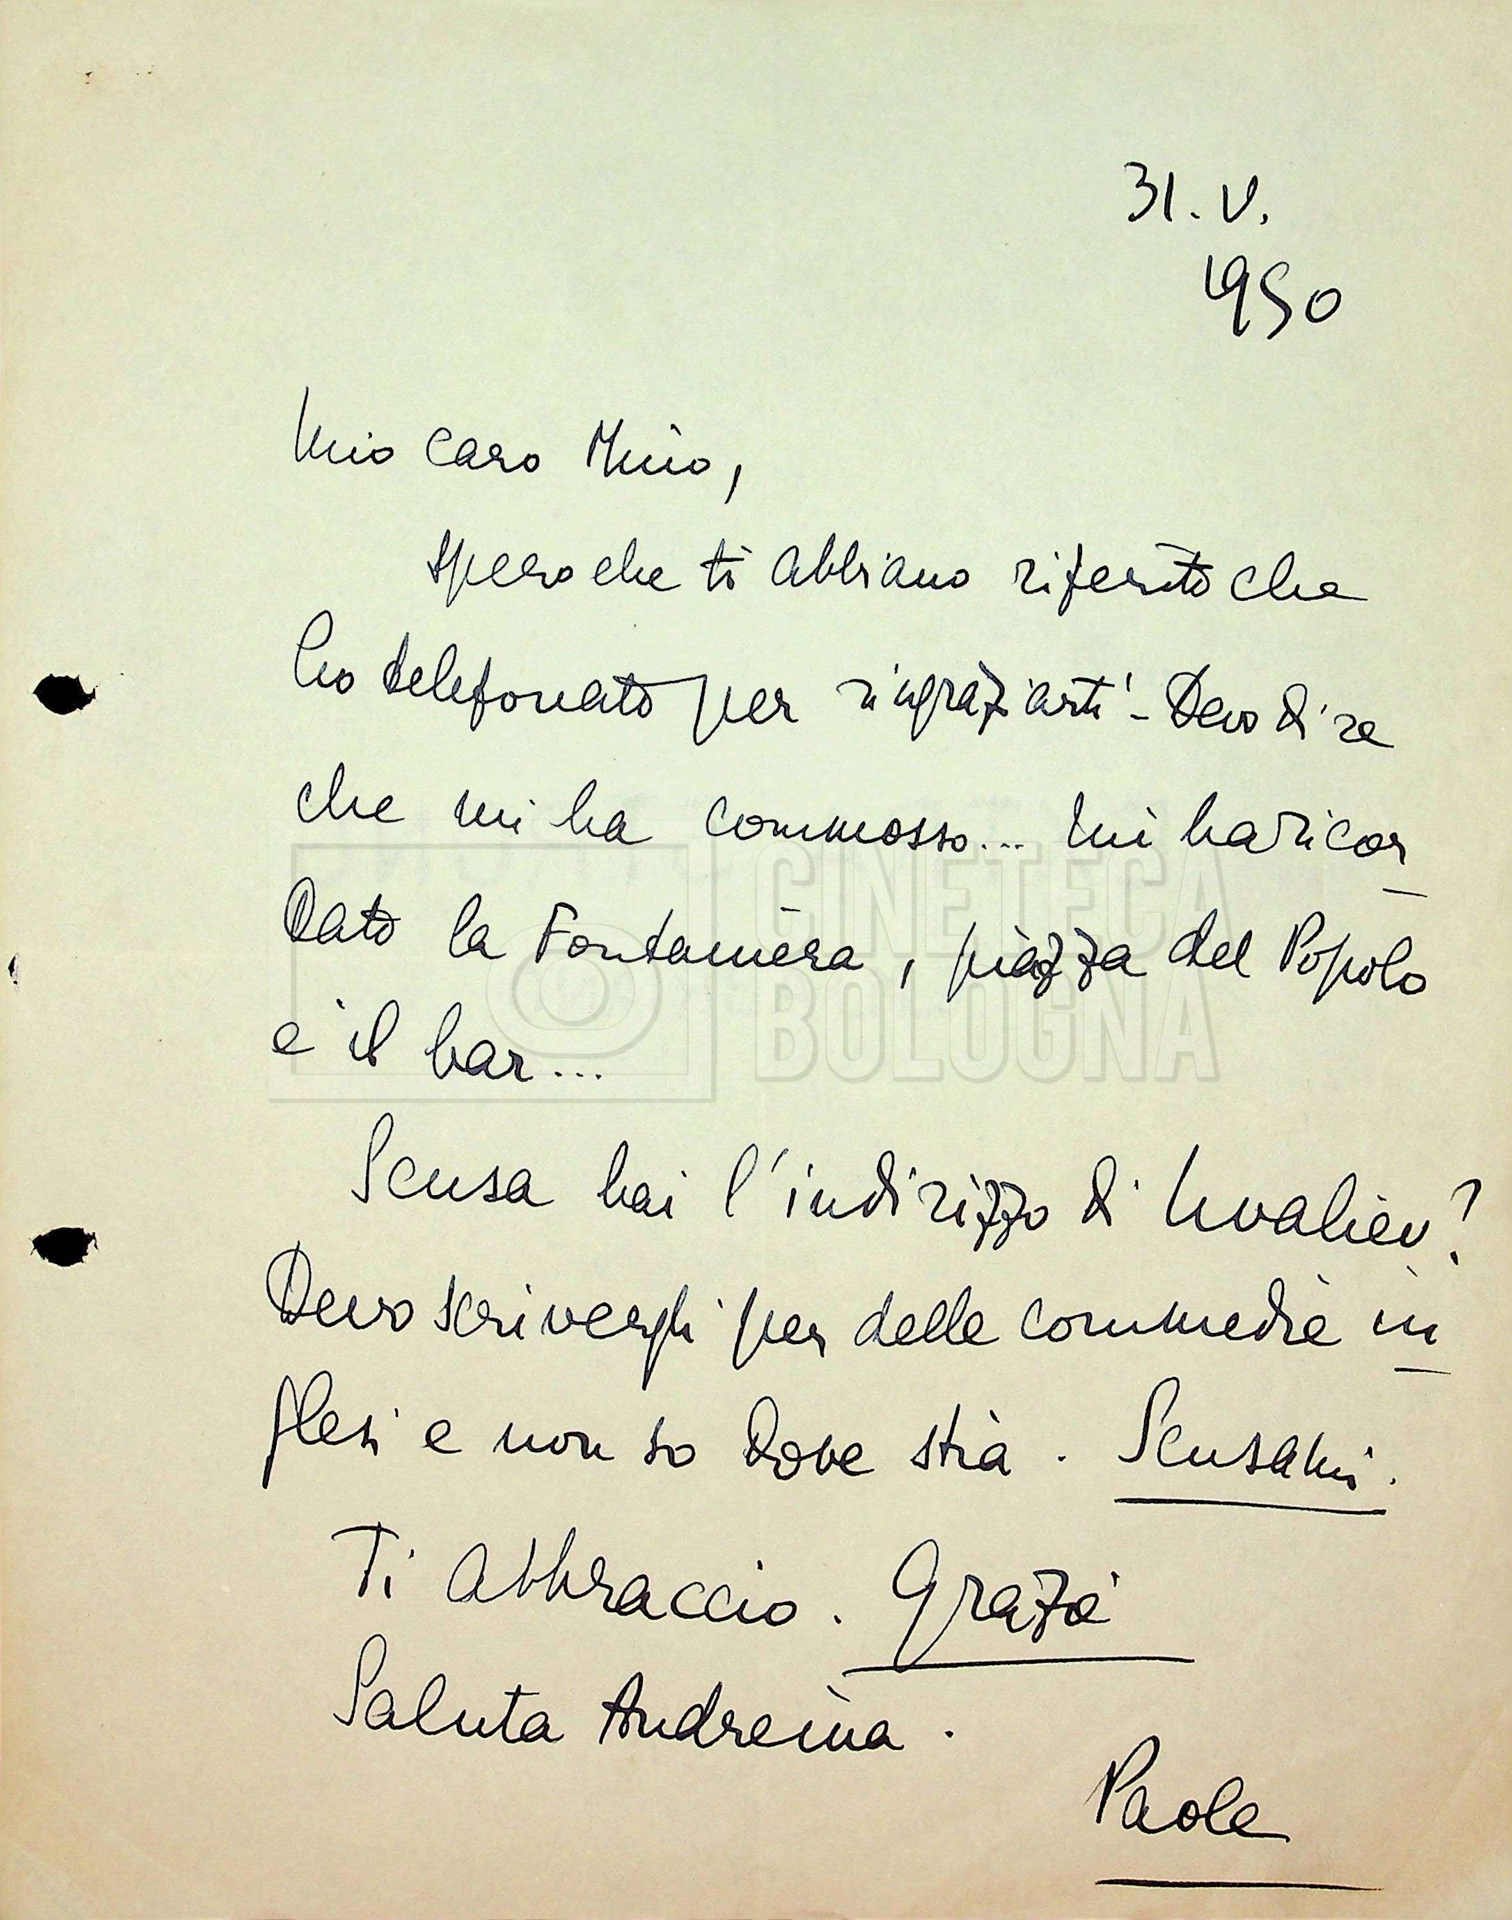 31.V.
1950
Mio caro Mino,
spero che ti abbiano riferito che
ho telefonato per ringraziarti - Devo dire
che mi ha commosso... Mi ha ricor
dato la Fontanèra, piazza del Popolo
e il bar...
CINETECA
BOLOGNA
Scusa hai l'indirizzo di ?
Devo scrivergli per delle commedie in
glesi e non so dove stia. Scusami.
Ti abbraccio. Grazie
Saluta Andreina.
Paola